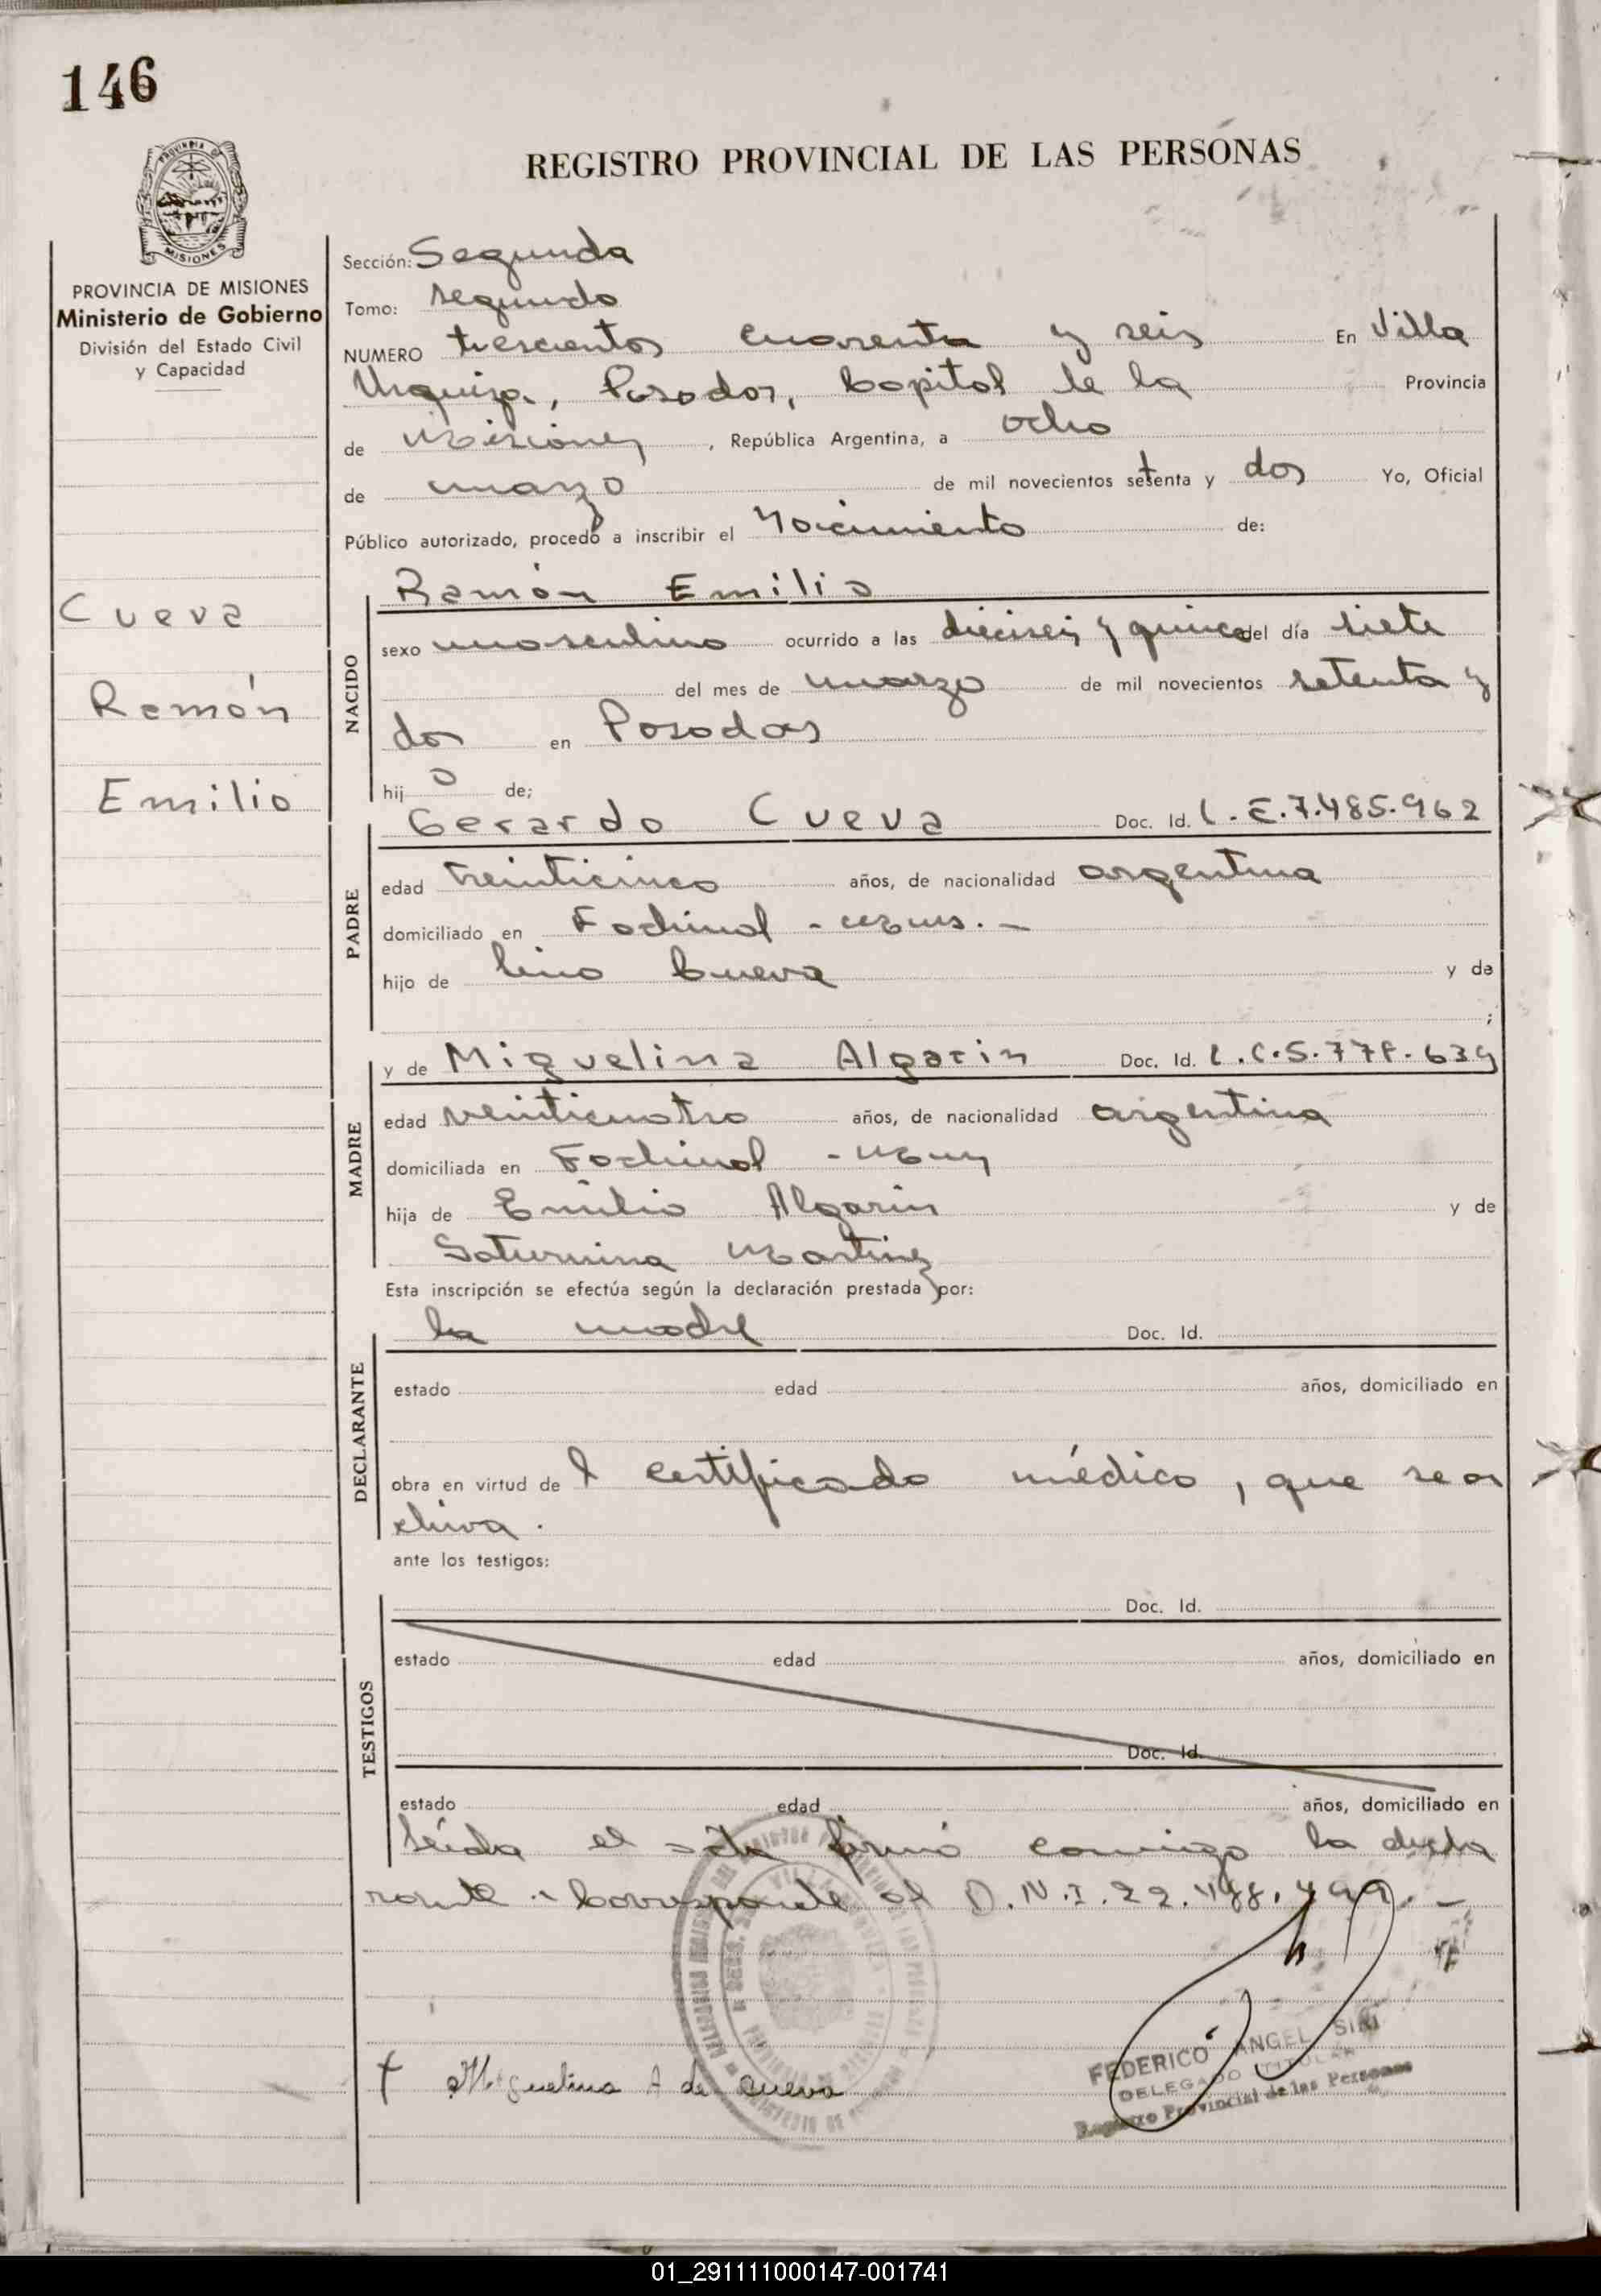 146
REGISTRO PROVINCIAL DE LAS PERSONAS
PROVINCIA DE MISIONES
MISIONES
PROVINCIA DE MISIONES
Ministerio de Gobierno
División del Estado Civil
y Capacidad
Cueva
Ramón
Emilio
Sección: Segunda
Tomo: segundo
NUMERO trescientos cuarenta y seis En Villa
Urquiza, Posadas, Capital de la Provincia
de Misiones, República Argentina, a ocho
de marzo de mil novecientos setenta y dos Yo, Oficial
Público autorizado, procedo a inscribir el Nacimiento de:
NACIDO
Ramón Emilio
sexo masculino ocurrido a las dieciseis y quince del día siete
del mes de marzo de mil novecientos setenta y
dos en Posadas
hij o de;
PADRE
Gerardo Cueva Doc. Id. L.E.7.485.962
edad veinticinco años, de nacionalidad argentina
domiciliado en Fachinal - Mnes. -
hijo de Lino Cueva y de
;
MADRE
y de Miguelina Algarin Doc. Id. L.C.5.778.639
edad veinticuatro años, de nacionalidad argentina
domiciliada en Fachinal - Mnes
hija de Emilio Algarin y de
Saturnina Martinez
Esta inscripción se efectúa según la declaración prestada por:
DECLARANTE
la madre Doc. Id.
estado edad años, domiciliado en
obra en virtud de l certificado médico, que se ar
chiva.
ante los testigos:
TESTIGOS
Doc. Id.
estado edad años, domiciliado en
Doc. Id.
estado edad años, domiciliado en
Leída el acta firmó conmigo la decla
rante. Corresponde al D.N.I. 22.488.499. -
Miguelina A de Cueva
FEDERICO ANGEL SIRI
DELEGADO TITULAR
Registro Provincial de las Personas
01_291111000147-001741